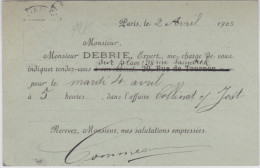 Paris, le 2 Avril 1905
Monsieur,
Monsieur DEBRIE, Expert, me charge de vous
indiquer rendez-vous sur place
30, Rue de Tournon
pour le mardi 4 avril
à 5 heures, dans l'affaire et Jost
Recevez, Monsieur, mes salutations empressées.